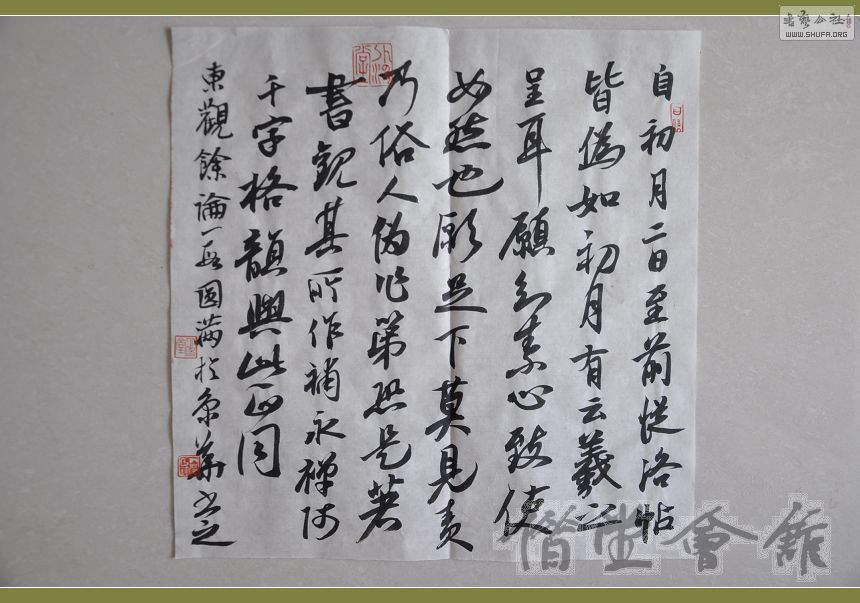 自初月二日至前從洛帖
皆偽如初月有云羲之
呈耳願剖素心致使
如然也願足下莫見責
乃俗人偽作第恐是著
書觀其所作補永禪師
千字格韻與此正同
東觀餘論一段圓滿於京華書之
書藝公社
WWW.SHUFA.ORG
會館